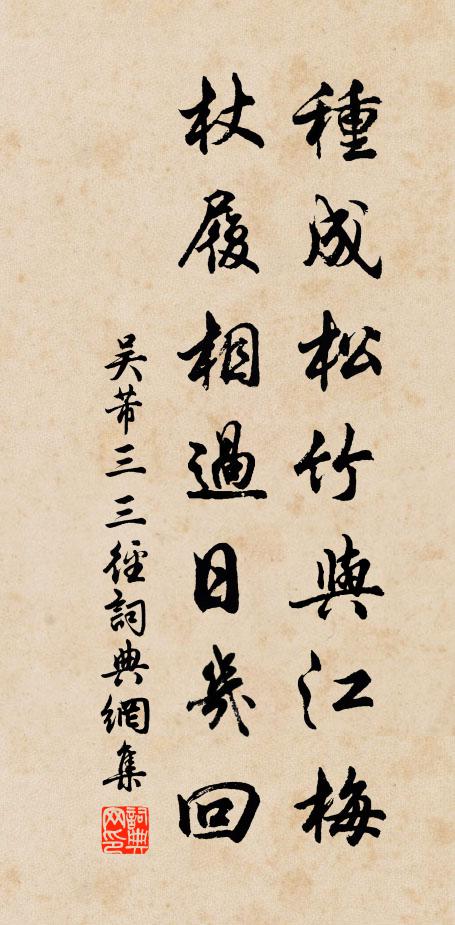 種成松竹與江梅
杖履相過日幾回
吳芾三三徑詞典網集
詞典网印